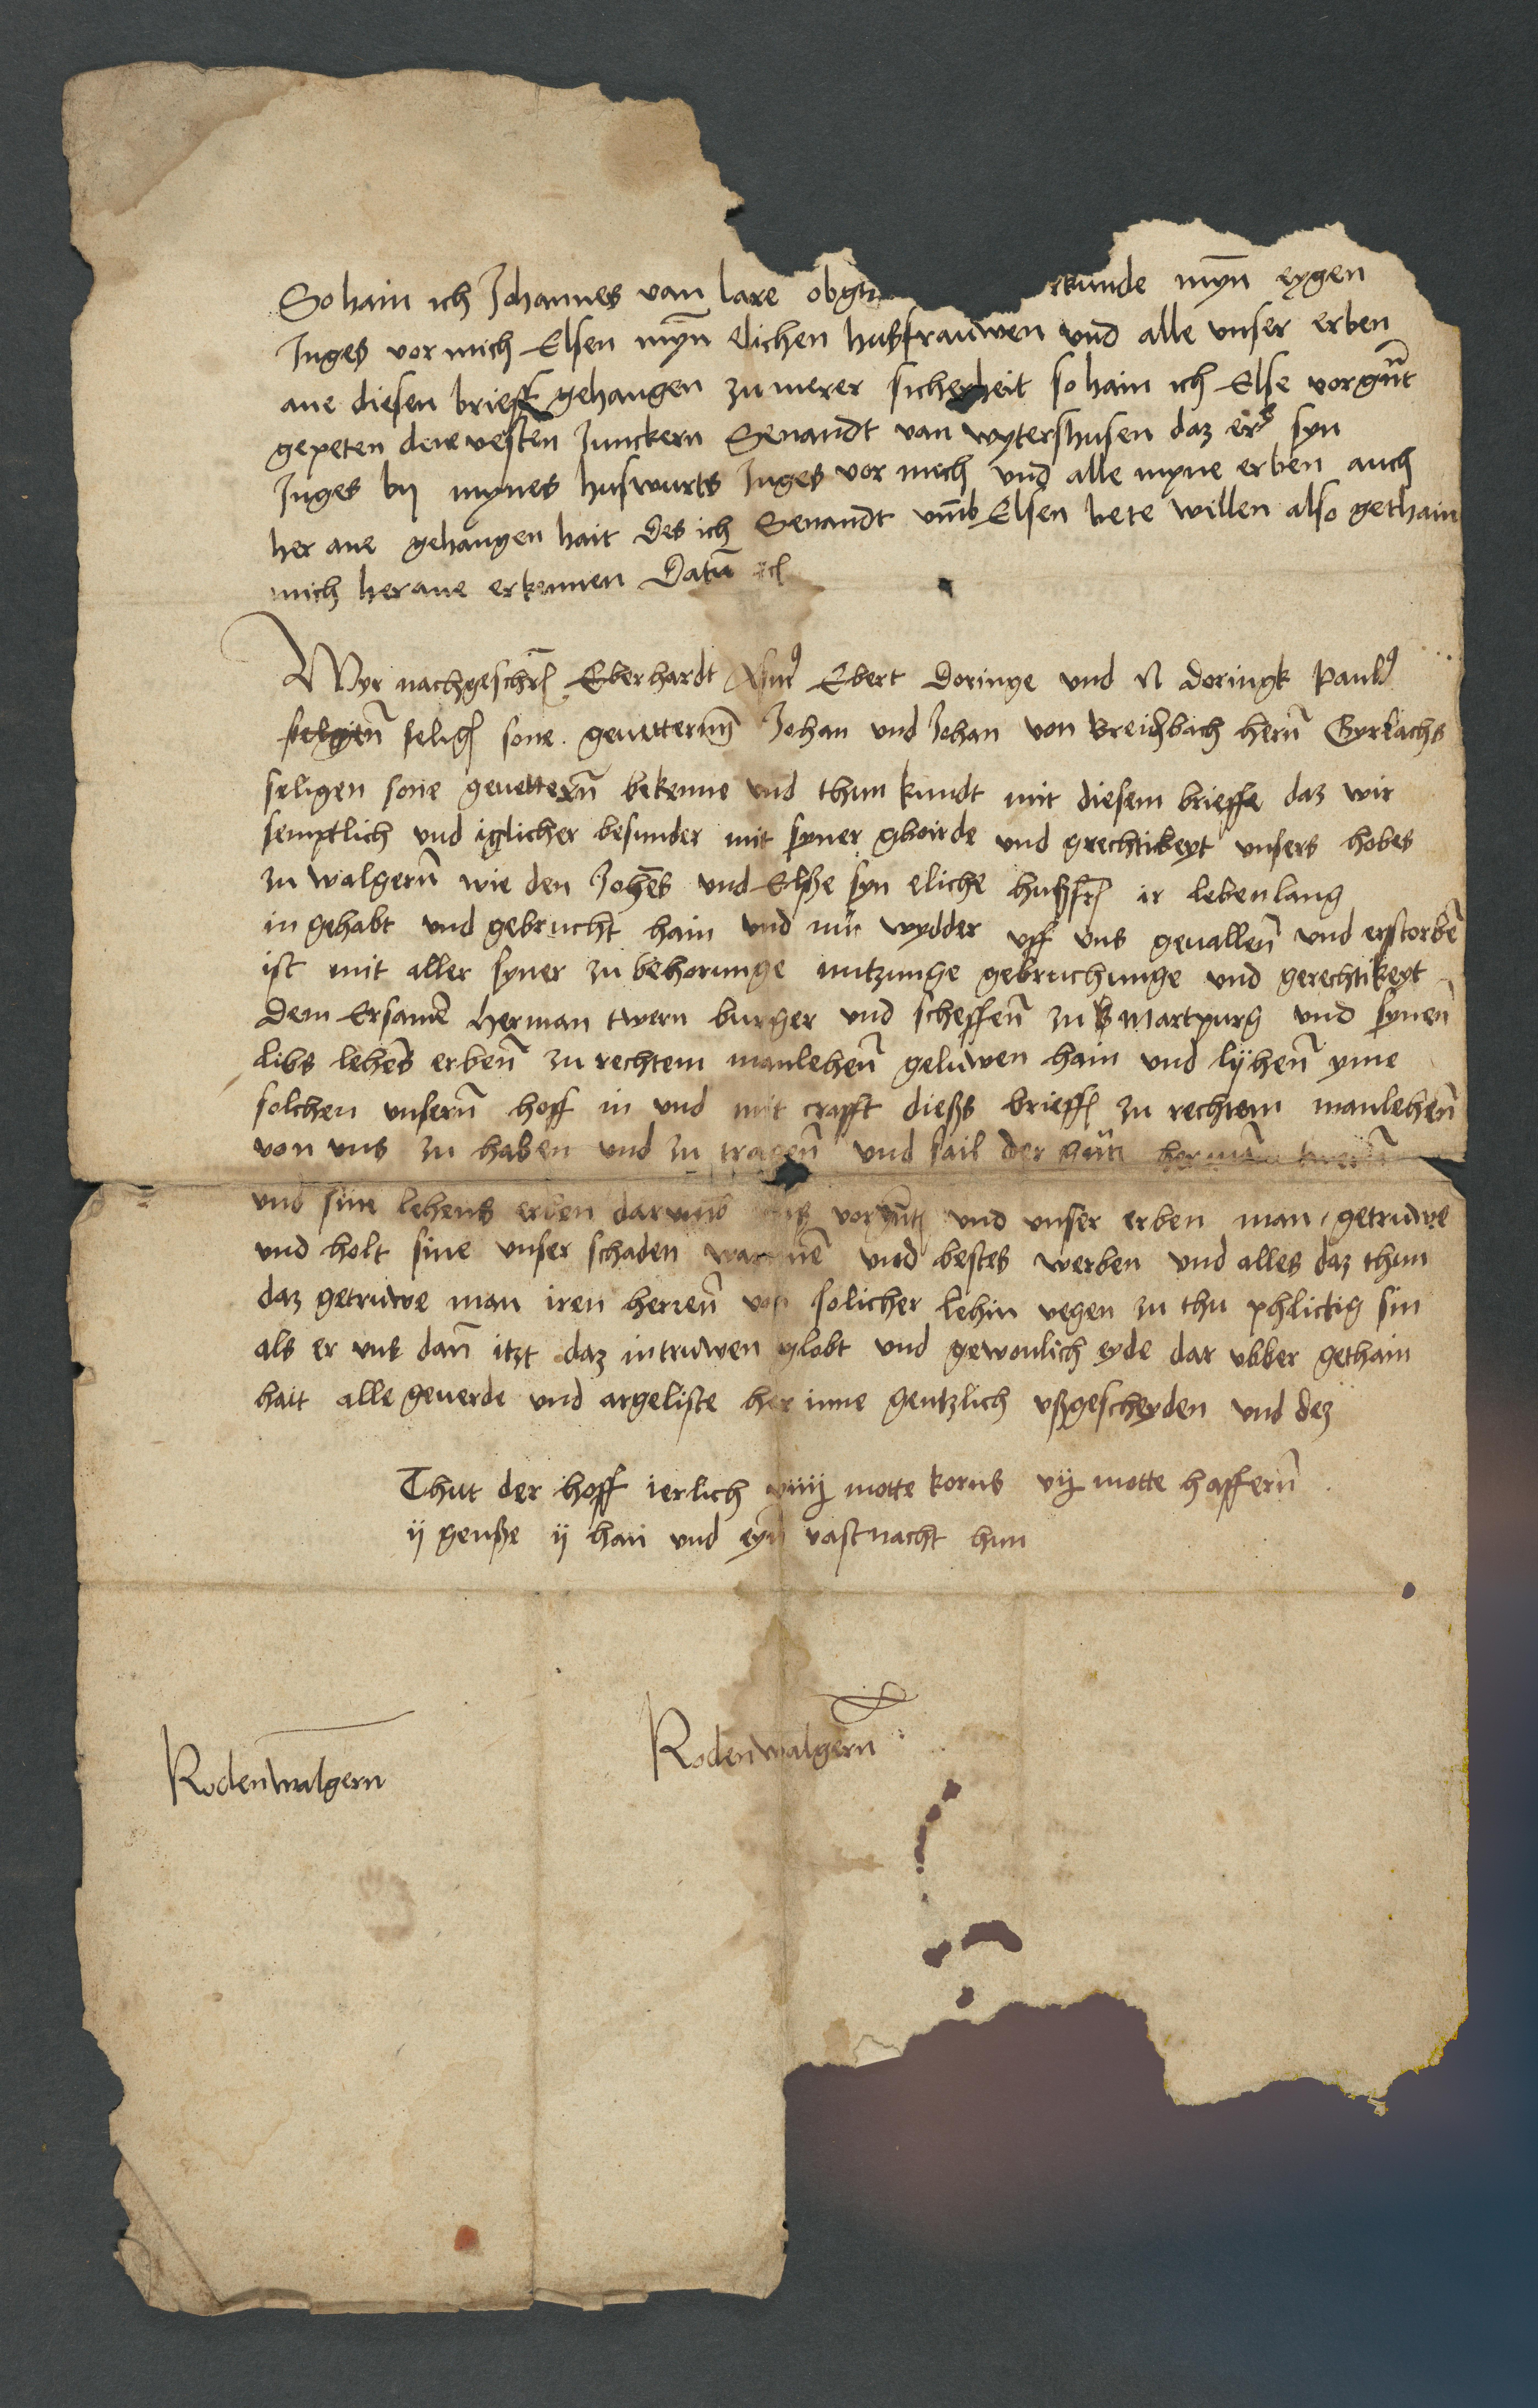 So hain ich Johannes van lare obgn rkunde myn̄ eygen
Inges vor mich Elsen myn̄ elichen hußfrauwen und alle unser erben
ane diesen brieff gehangen zu merer sicherheit so hain ich Else vorgn̄t
gepeten dene vesten Junckern Senandt van wytershusen daz er syn
Inges by mynes huswurts Inges vor mich und alle myne erben auch
her ane gehangen hait des ich Senandt vm̄b Elsen bete willen also gethain
mich herane erkennen Datū
Wyr nachgeschr Eberhardt Ebert Doringe und N doringk Paul9
selig sone geuettern Johan und Johan von Breidbach hern̄ Gyrlachs
seligen sone geuettern̄ bekenne und thun kundt mit diesem brieffe daz wir
semptlich und iglicher besunder mit syner gboirde und grechtikeyt unsers hobes
zu walgern̄ wie den Johēs und Elße syn eliche hußfr ir lebenlang
in gehabt und gebrucht hain und nu wydder uff uns geuallen̄ und erstorbē
ist mit aller syner zu behorunge nutzunge gebruchunge und gerechtikeyt
dem Ersamē Herman twern burger und scheffen̄ zu Martpurg und synen̄
libs lehēs erben̄ zu rechtem manlehen̄ geluwen hain und lyhen̄ yme
solchen unsern̄ hoff in und mit crafft dießs brieff zu rechtem manlehen̄
von uns zu haben und zu tragen̄ und sail der herman twern̄
und sine lehens erben darumb uns vorgn̄t und unser erben man getruwe
und holt sine unser schaden warnē und bestes werben und alles daz thun
daz getruwe man iren herren̄ von solicher lehin wegen zu thu phlictig sin
als er uns dan̄ itzt daz intruwen globt und gewonlich eyde dar ubber gethain
hait alle geuerde und argeliste her inne gentzlich ußgescheyden und dez
Thut der hoff ierlich viiij motte korns vij motte haffern̄
ij genße ij han und eyn̄ vastnacht hun
Rodenwalgern̄
Rodenwalgern